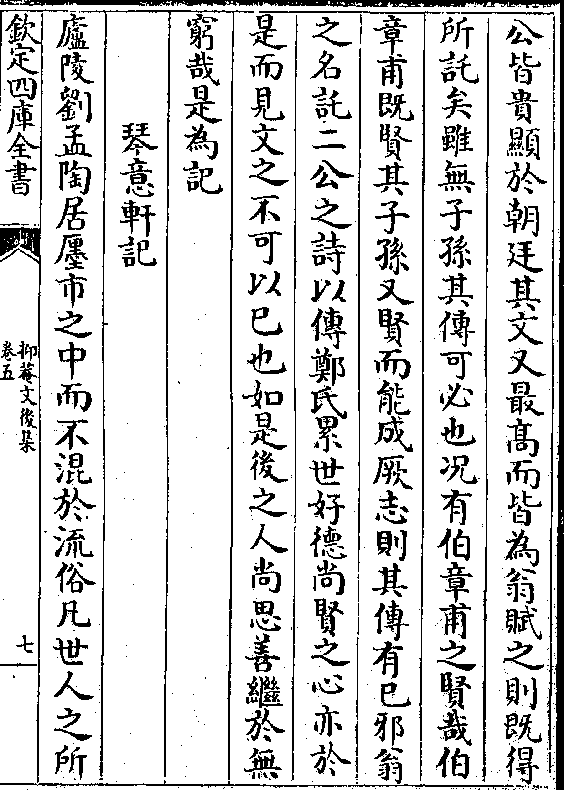 公皆貴顯於朝廷其文又最髙而皆為翁賦之則既得
所託矣雖無子孫其傳可必也况有伯章甫之賢哉伯
章甫既賢其子孫又賢而能成厥志則其傳有已邪翁
之名託二公之詩以傳鄭氏累世好德尚賢之心亦於
是而見文之不可以已也如是後之人尚思善繼於無
窮哉是為記
琴意軒記
廬陵劉孟陶居廛市之中而不混於流俗凡世人之所
欽定四庫全書
抑菴文後集
卷五
七